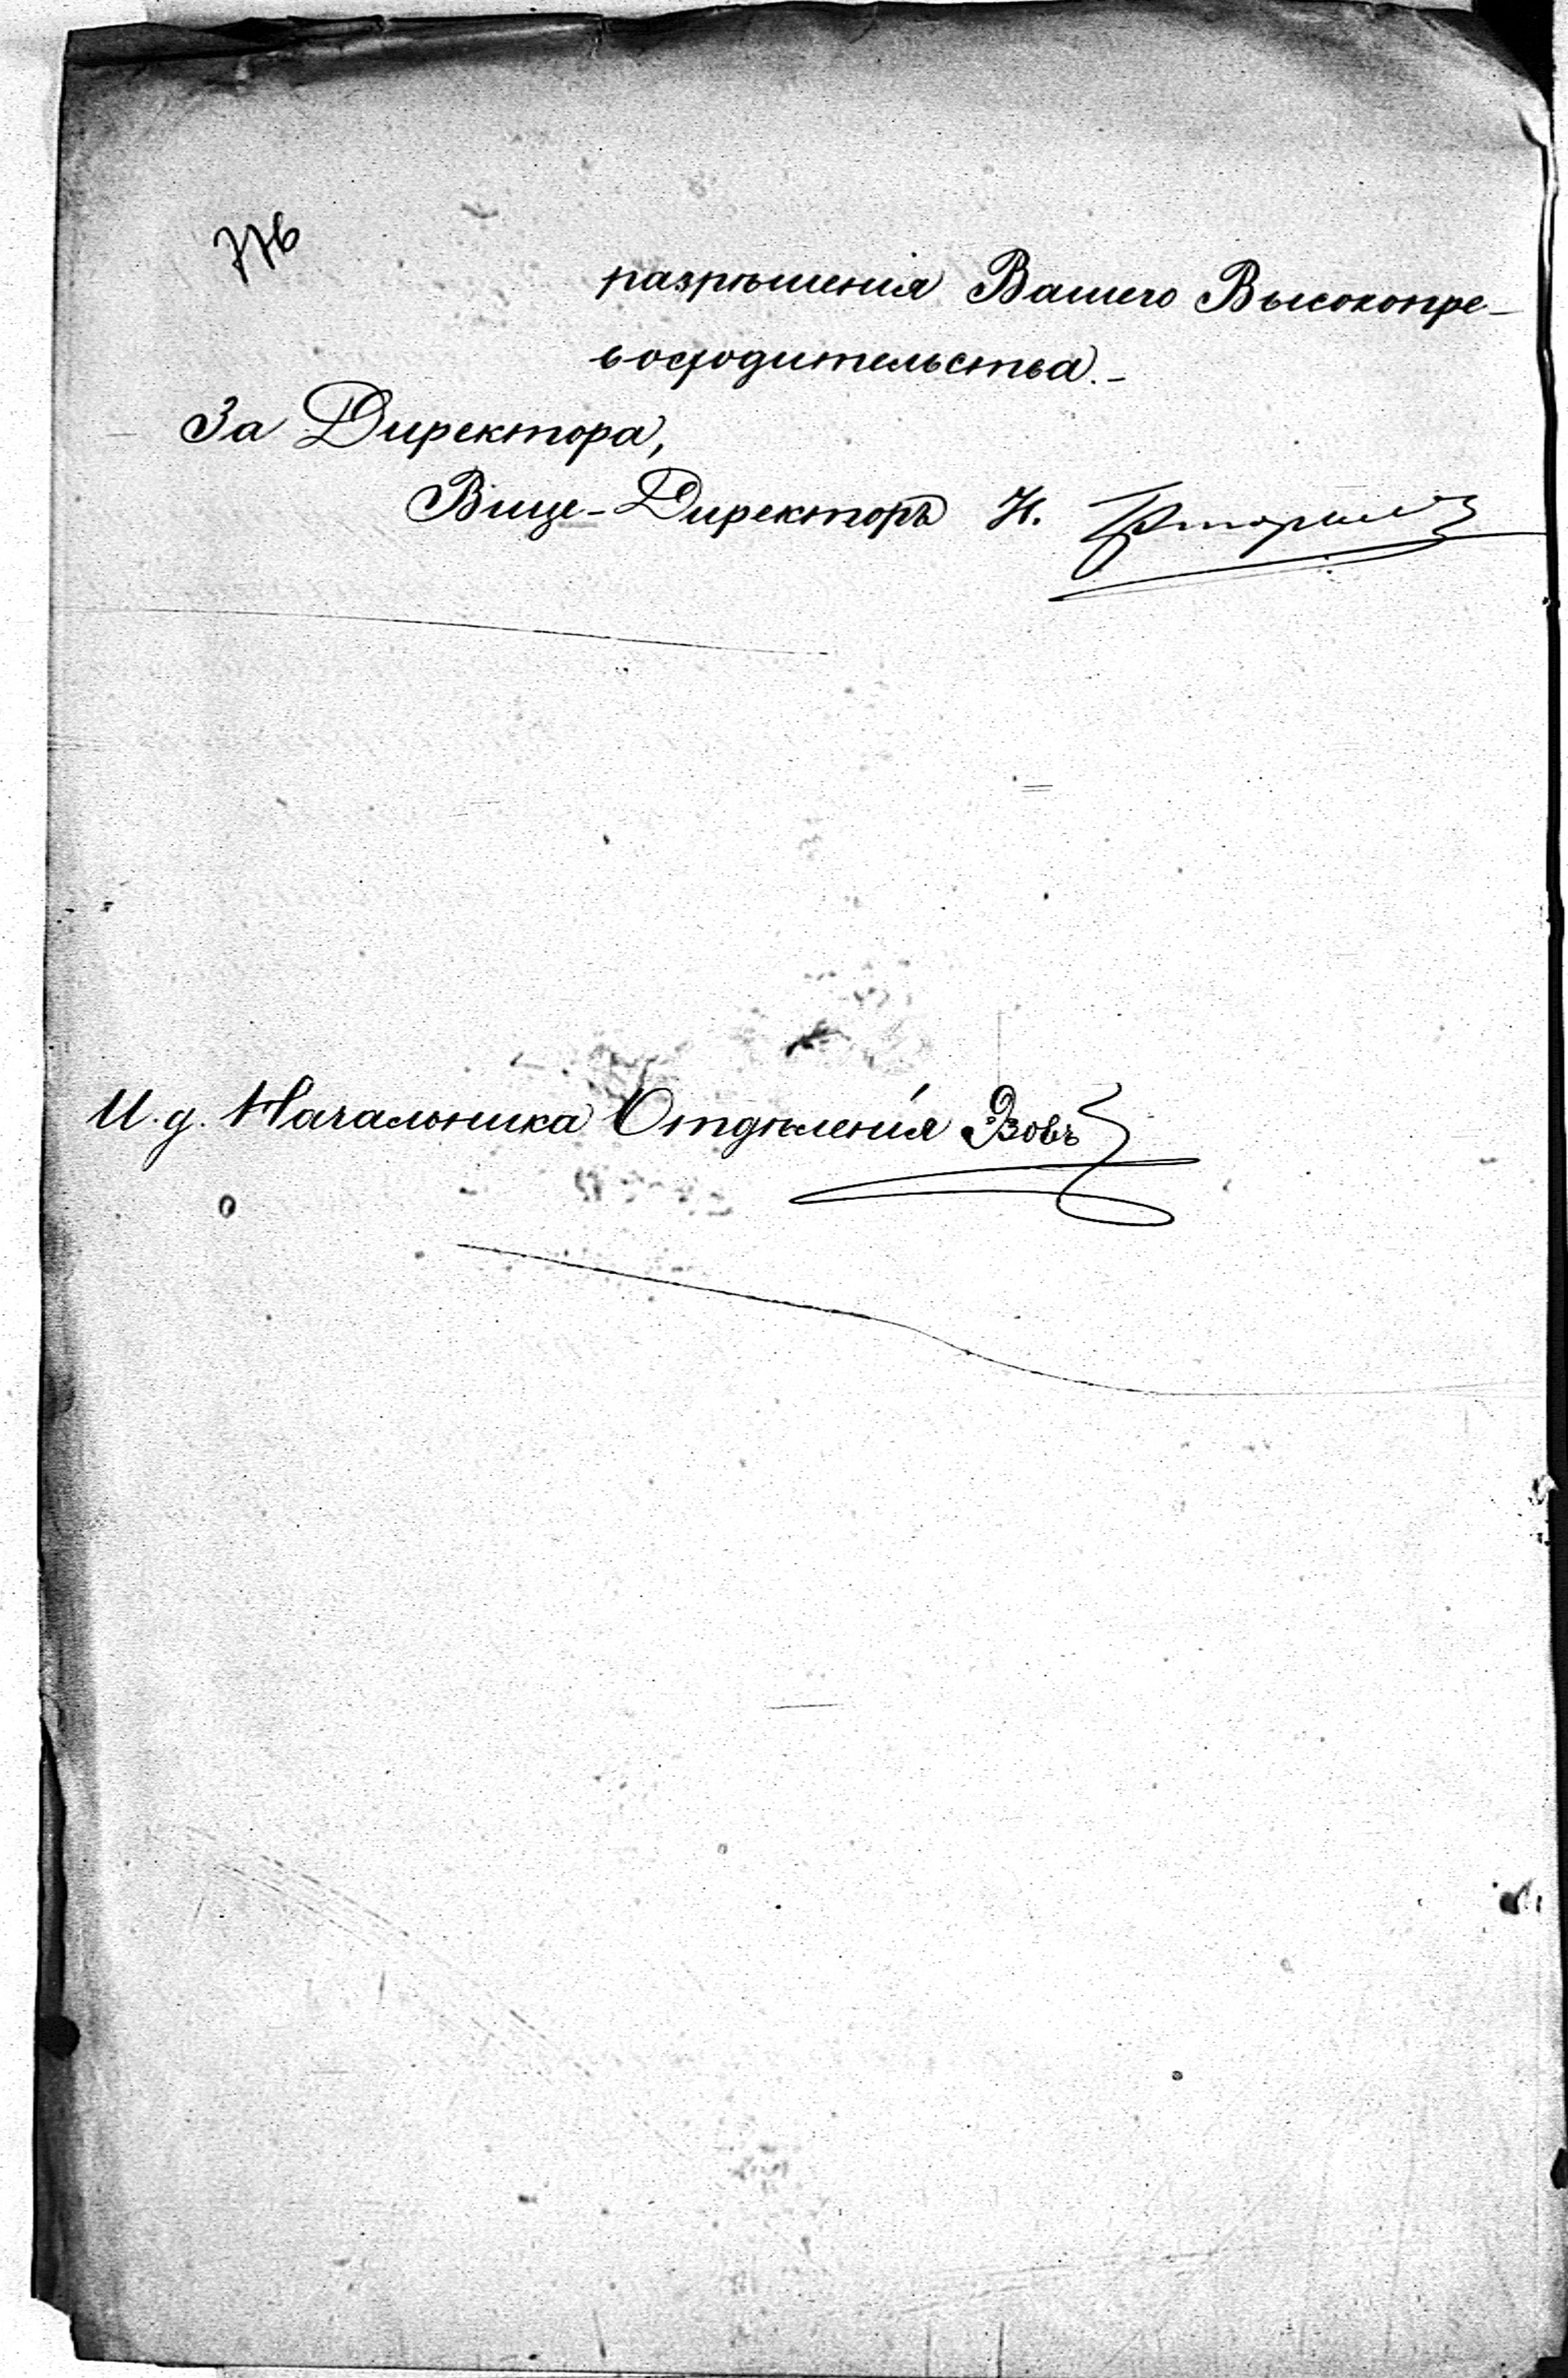 776
разрѣшенія Вашего Высокопре-
восходительства.-
За Директора,
Вице-Директоръ Н.
И.д. Начальника Отдѣленія